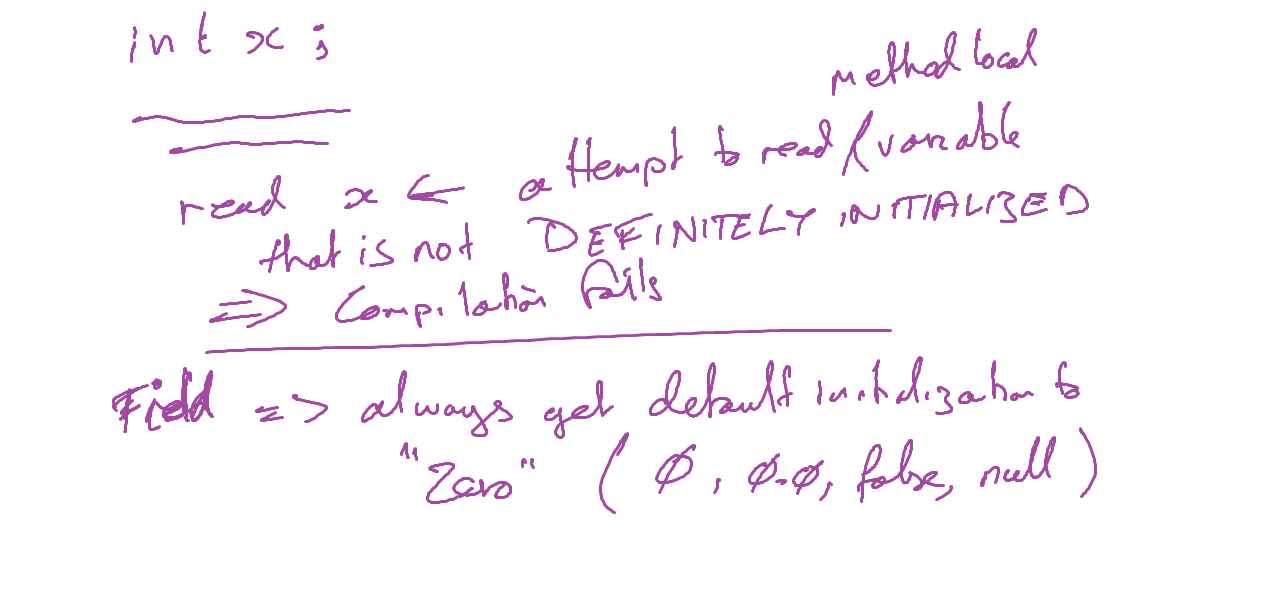 int x ;
method local
read x ← attempt to read / variable
that is not DEFINITELY INITIALIZED
⇒ Compilation fails
Field => always get default initialization to
"Zero" ( 0, 0.0, false, null )